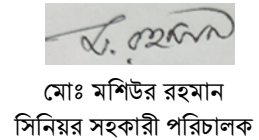 মোঃ মশিউর রহমান
সিনিয়র সহকারী পরিচালক